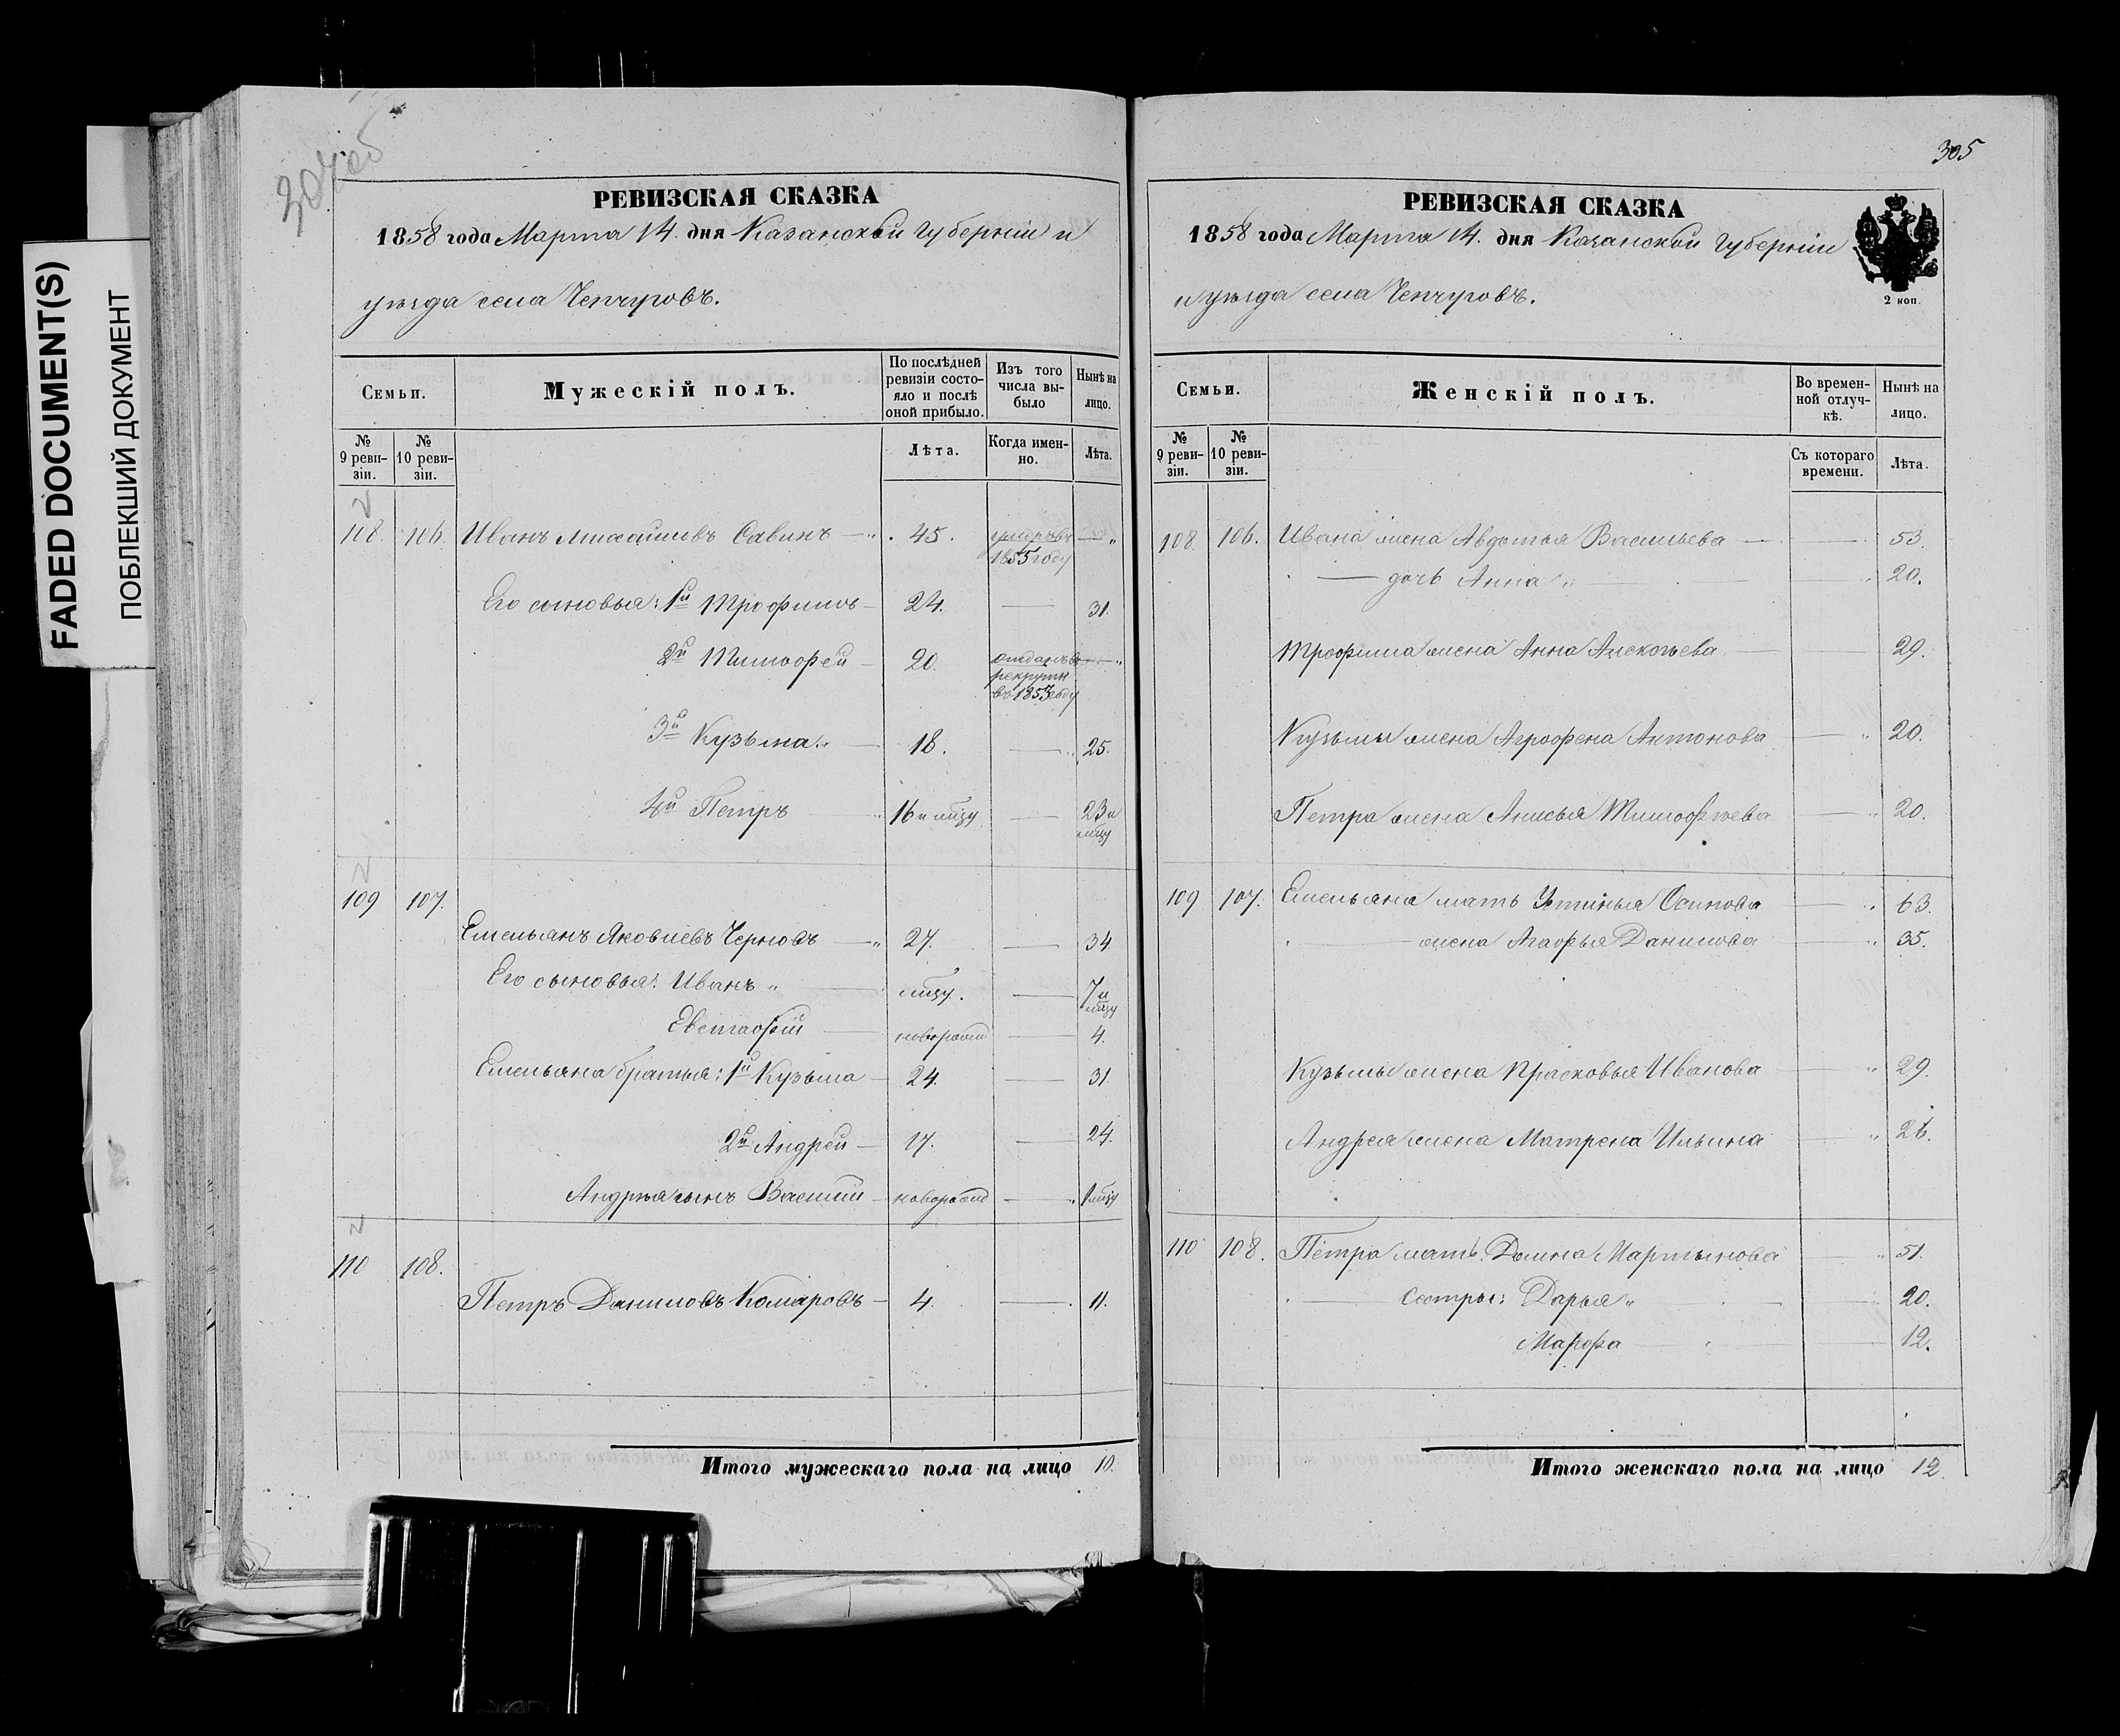 FADED DOCUMENT(S)
ПОБЛЕКШИЙ ДОКУМЕНТ
304об
РЕВИЗСКАЯ СКАЗКА
1858 года Марта 14. дня Казанской Губерніи и
уѣзда села Чепчуровъ.
Семьи.
Мужескій полъ.
По послѣдней ревизіи состояло и послѣ оной прибыло.
Изъ того числа выбыло
Нынѣ на лицо.
№ 9 ревизіи.
№ 10 ревизіи.
Лѣта.
Когда именно.
Лѣта.
108. 106. Иванъ Михайловъ Савинъ 45. умеръ въ 1855 году
Его сыновья: 1й Трофимъ 24. 31.
2й Тимофей 20. отданъ въ рекруты въ 185 году
3й Кузьма 18. 25.
4й Петръ 16 и мцу 23 и мцу
109 107.
Емельянъ Яковлевъ Черновъ 27. 34.
Его сыновья: Иванъ мцу. 7 и мцу
Евстафій новорожд 4.
Емельяна братья: 1й Кузьма 24. 31.
2й Андрей 17. 24.
Андрея сынъ Василій новорожд 1 мцу
110 108.
Петръ Даниловъ Комаровъ 4. 11.
Итого мужескаго пола на лицо 10.
305
РЕВИЗСКАЯ СКАЗКА
1858 года Марта 14. дня Казанской Губерніи
и уѣзда села Чепчуровъ.
2 коп.
Семьи.
Женскій полъ.
Во временной отлучкѣ.
Нынѣ на лицо.
№ 9 ревизіи.
№ 10 ревизіи.
Съ котораго времени.
Лѣта.
108 106. Ивана жена Авдотья Васильева 53.
дочь Анна 20.
Трофима жена Анна Алексѣева 29.
Кузьмы жена Агрофена Антонова 20.
Петра жена Анисья Тимофѣева 20.
109 107. Емельяна мать Устинья Осипова 63.
жена Агафья Данилова 35.
Кузьмы жена Прасковья Иванова 29.
Андрея жена Матрена Ильина 26.
110 108. Петра мать Домна Мартынова 51.
сестры: Дарья 20.
Марфа 12.
Итого женскаго пола на лицо 12.